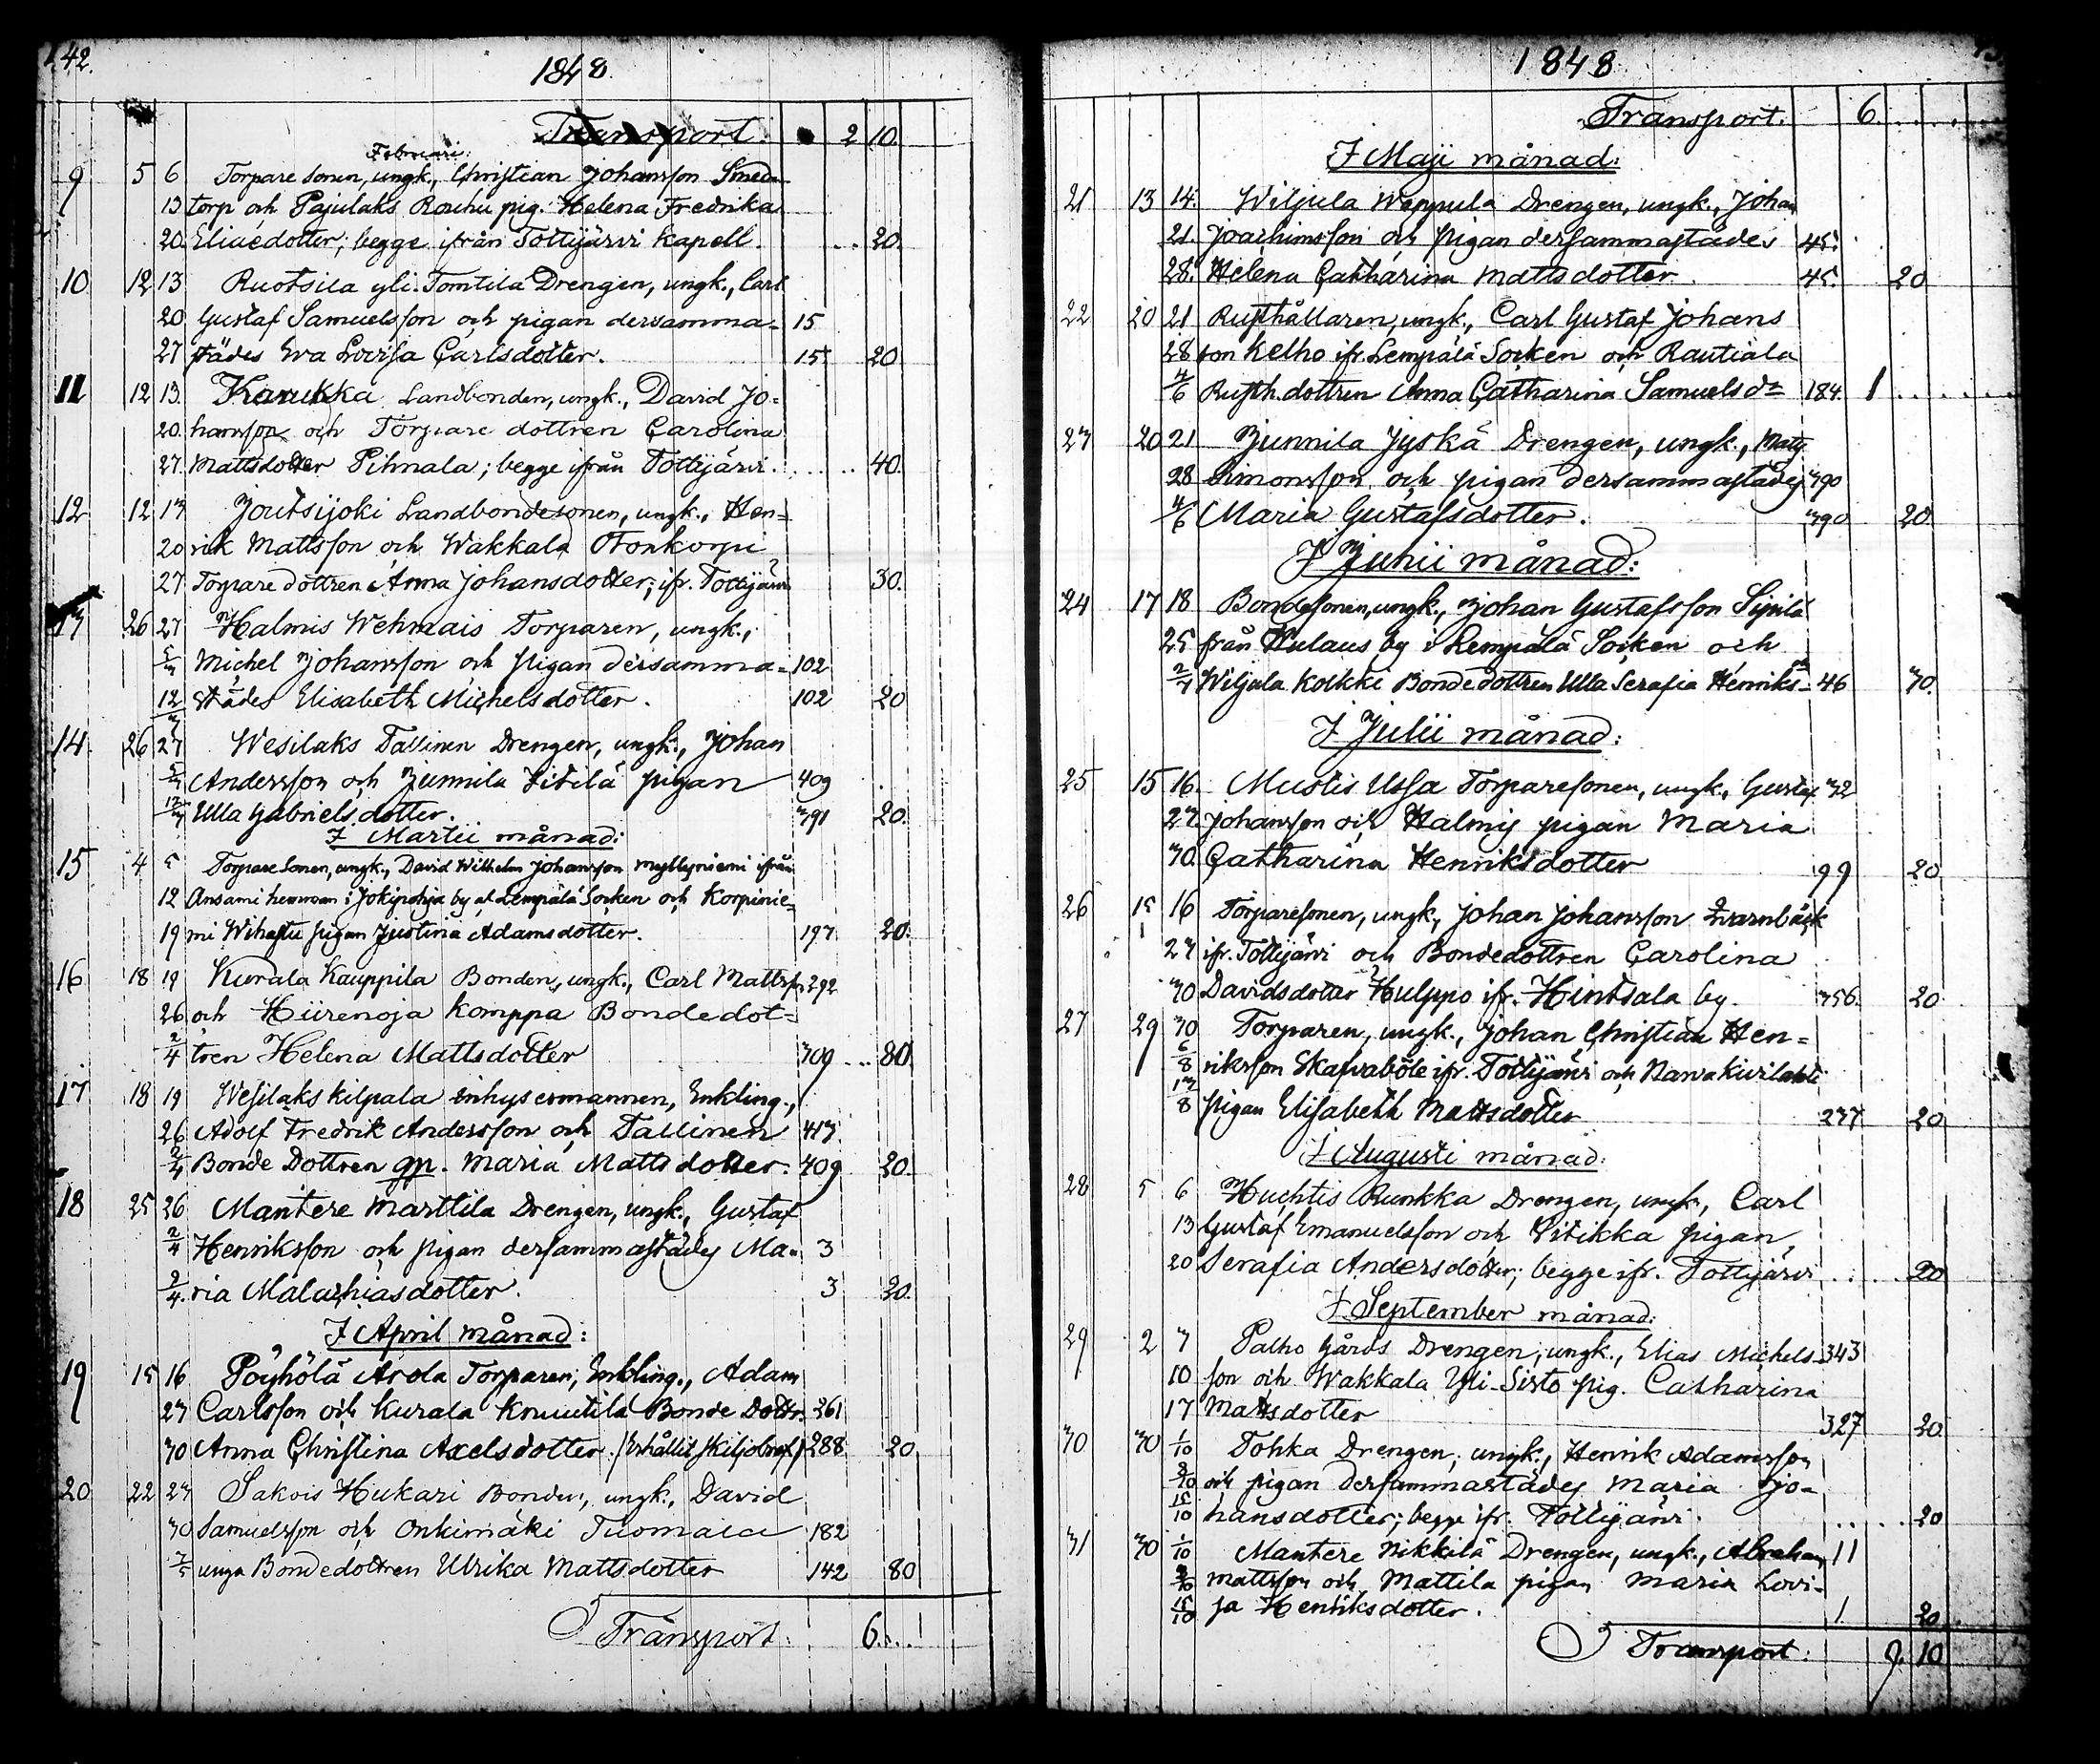 142.
1848.
Transport. 2 10.
Februari
9 5 6 Torpare sonen, ungk., Christian Johansson Smeds-
13 torp och Pajulaks Rouhu pig. Helena Fredrika
20 Eliaedotter; begge ifrån Tottijärvi Kapell. 20.
10 12 13 Ruotsila yli-Tomtila Drengen, ungk., Carl
20 Gustaf Samuelsson och pigan dersamma- 15
27 städes Eva Lovisa Carlsdotter. 15 20
11 12 13. Kaukka Landbonden, ungk., David Jo-
20. hansson och Torpare dottren Carolina
27. Mattsdotter Pihnala; begge ifrån Tottijärvi. 40.
12 12 13 Joutsijoki Landbondesonen, ungk., Hen-
20 rik Mattsson och Wakkala Tonkorpi
27 Torpare dottren Anna Johansdotter; ifr. Tottijärvi 30.
13 26 27 Halmis Wehmais Torparen, ungk.,
5/3 Michel Johansson och pigan dersamma- 102
12/3 städes Elisabeth Michelsdotter. 102 20
14. 26 27 Wesilaks Tallinen Drengen, ungk., Johan
5/3 Andersson och Junnila Iitilä pigan 409
12/3 Ulla Gabrielsdotter. 391 20.
I Martii månad:
15 4 5 Torpare sonen, ungk., David Wilhelm Johansson Myllyniemi ifrån
12 Ansami hemman i Jokipohja by af Lempälä Socken och Korpinie-
19 mi Wihattu pigan Justina Adamsdotter. 197 20.
16 18 19 Kurala Kauppila Bonden, ungk., Carl Mattss. 292
26 och Hiirenoja Komppa Bondedot-
2/4 tren Helena Mattsdotter 309 80.
17 18 19 Wesilaks Kilpala inhysesmannen, Enkling.,
26 Adolf Fredrik Andersson och Tallinen 413.
2/4 Bonde Dottren qp. Maria Mattsdotter. 409 20.
18 25 26 Mantere Marttila Drengen, ungk., Gustaf
2/4 Henriksson och pigan dersammastädes Ma- 3
9/4 ria Malachiasdotter. 3 20.
I April månad:
19 15 16 Pöyhölä Arola Torparen, Enkling., Adam
23 Carlsson och Kurala Knuutila Bonde Dottr. 261
30 Anna Christina Axelsdotter. (Erhållit skiljobref) 288 20
20 22 23 Sakois Hukari Bonden, ungk., David
30 Samuelsson och Onkimäki Tuomala 182
7/5 unga Bondedottren Ulrika Mattsdotter 142 80
Transport. 6.
1848
Transport. 6.
I Maji månad:
21 13 14. Wiljula Wappula Drengen, ungk., Johan
21. Joachimsson och pigan dersammastädes 45.
28. Helena Catharina Mattsdotter. 45. 20
22 20 21 Rusthållaren, ungk., Carl Gustaf Johans
28 son Kelho ifr. Lempälä Socken och Rautiala
4/6 Rusth.dottren Anna Catharina Samuelsdr 184. 1
23 20 21 Junnila Jyskä Drengen, ungk., Matts
28 Simonsson och pigan dersammastädes 390
4/6 Maria Gustafsdotter. 390 20
I Junii månad:
24 17 18 Bondesonen, ungk., Johan Gustafsson Sipilä
25 från Kulaus by i Lempälä Socken och
2/7 Wiljala Kolkki Bondedottren Ulla Serafia Henriks- 46 70.
I Julii månad:
25 15 16. Mustis Ussa Torparesonen, ungk., Gustaf 32
23. Johansson och Halmis pigan Maria
30. Catharina Henriksdotter 99 20
26 15 16 Torparesonen, ungk., Johan Johansson Qvarnbäck
23 ifr. Tottijärvi och Bondedottren Carolina
30 Davidsdotter Hulppo ifr. Hintsala by. 356. 20
27 29 30 Torparen, ungk., Johan Christian Hen-
6/8 riksson Skafvaböle ifr. Tottijärvi och Narva Kivilahti
13/8 pigan Elisabeth Mattsdotter 237 20
I Augusti månad.
28 5 6 Huchtis Runkka Drengen, ungk., Carl
13 Gustaf Emanuelsson och Pitikka pigan
20 Serafia Andersdotter; begge ifr. Tottijärvi 20
I September månad:
29 2 3 Palho Gårds Drengen, ungk., Elias Michels- 343
10 son och Wakkala Yli-Sisto pig. Catharina
17 Mattsdotter 327 20
30 30 1/10 Tohka Drengen, ungk., Henrik Adamsson
8/10 och pigan dersammastädes Maria Jo-
15/10 hansdotter; begge ifr. Tottijärvi. 20
31 30 1/10 Mantere Nikkilä Drengen, ungk., Abraham 11
8/10 Mattsson och Mattila pigan Maria Lovi-
15/10 sa Henriksdotter. 1. 20
Transport: 9. 10